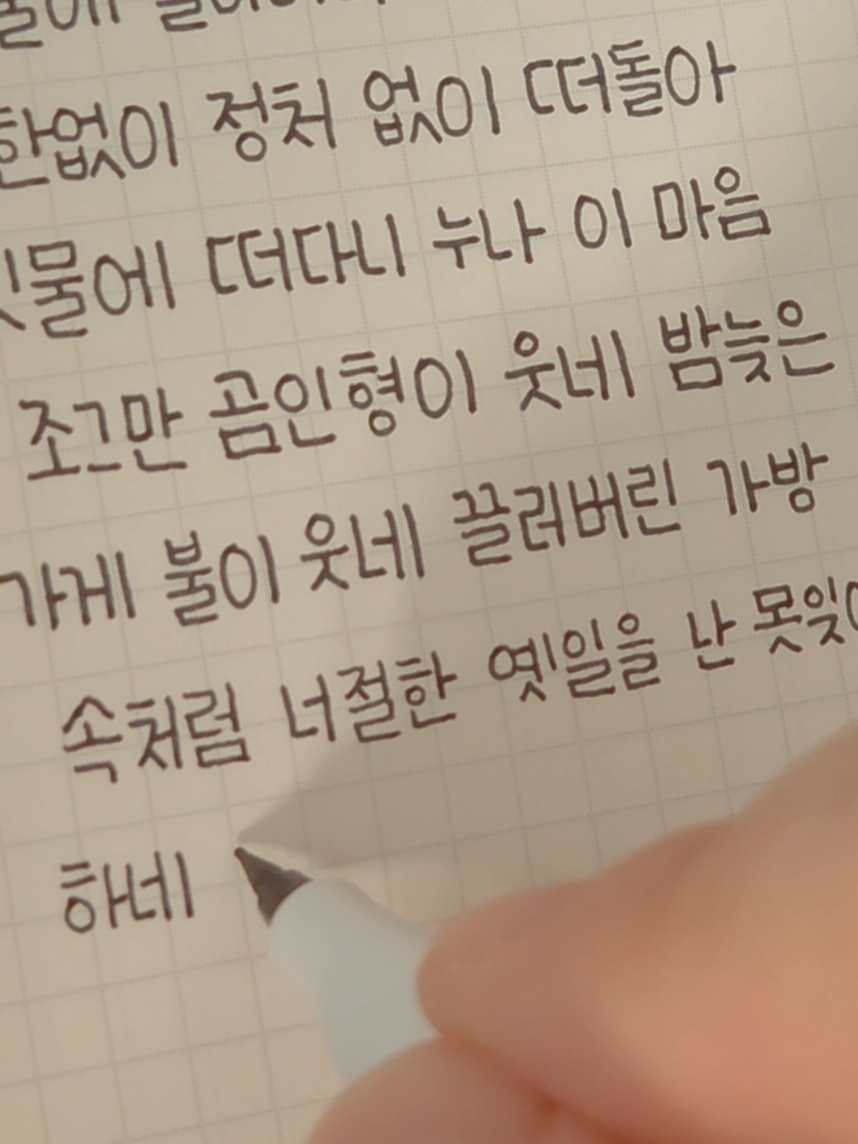 한없이 정처 없이 떠돌아
물에 떠다니 누나 이 마음
조그만 곰인형이 웃네 밤늦은
가게 불이 웃네 끌러버린 가방
속처럼 너절한 옛일을 난 못잊
하네